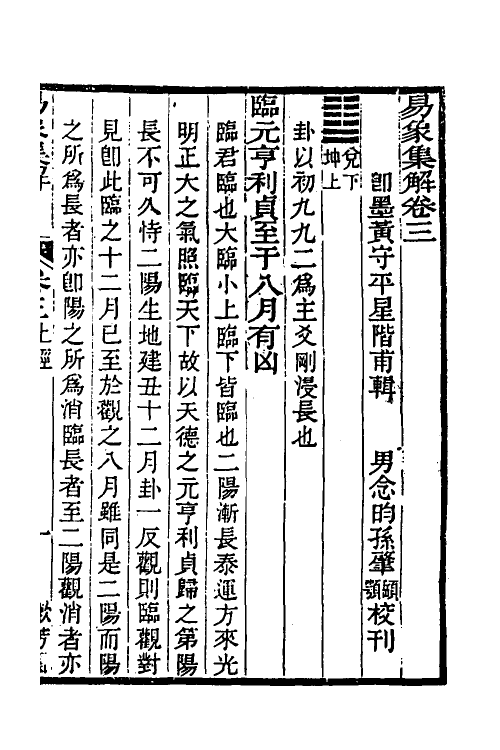 易象集解卷三
卽墨黃守平星階甫輯　男念昀孫肇顓顎校刊
兌下坤上
卦以初九九二爲主爻剛浸長也
臨元亨利貞至于八月有凶
臨君臨也大臨小上臨下皆臨也二陽漸長泰運方來光
明正大之氣照臨天下故以天德之元亨利貞歸之第陽
長不可久恃二陽生地建丑十二月卦一反觀則臨觀對
見卽此臨之十二月已至於觀之八月雖同是二陽而陽
之所爲長者亦卽陽之所爲消臨長者至二陽觀消者亦
易象集解　卷三上經　一　漱芳園